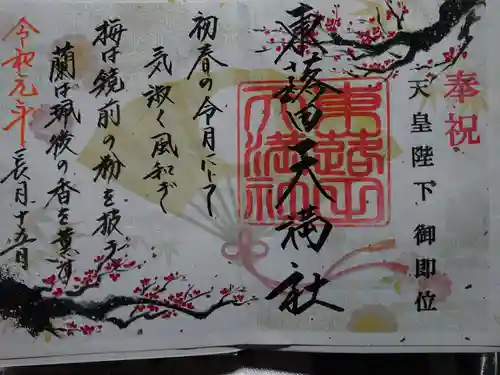 奉祝
天皇陛下御即位
東落合天満社
初春の令月にして
気淑く風和ぎ
梅は鏡前の粉を披き
蘭は珮後の香を薫す
令和元年
長月十五日